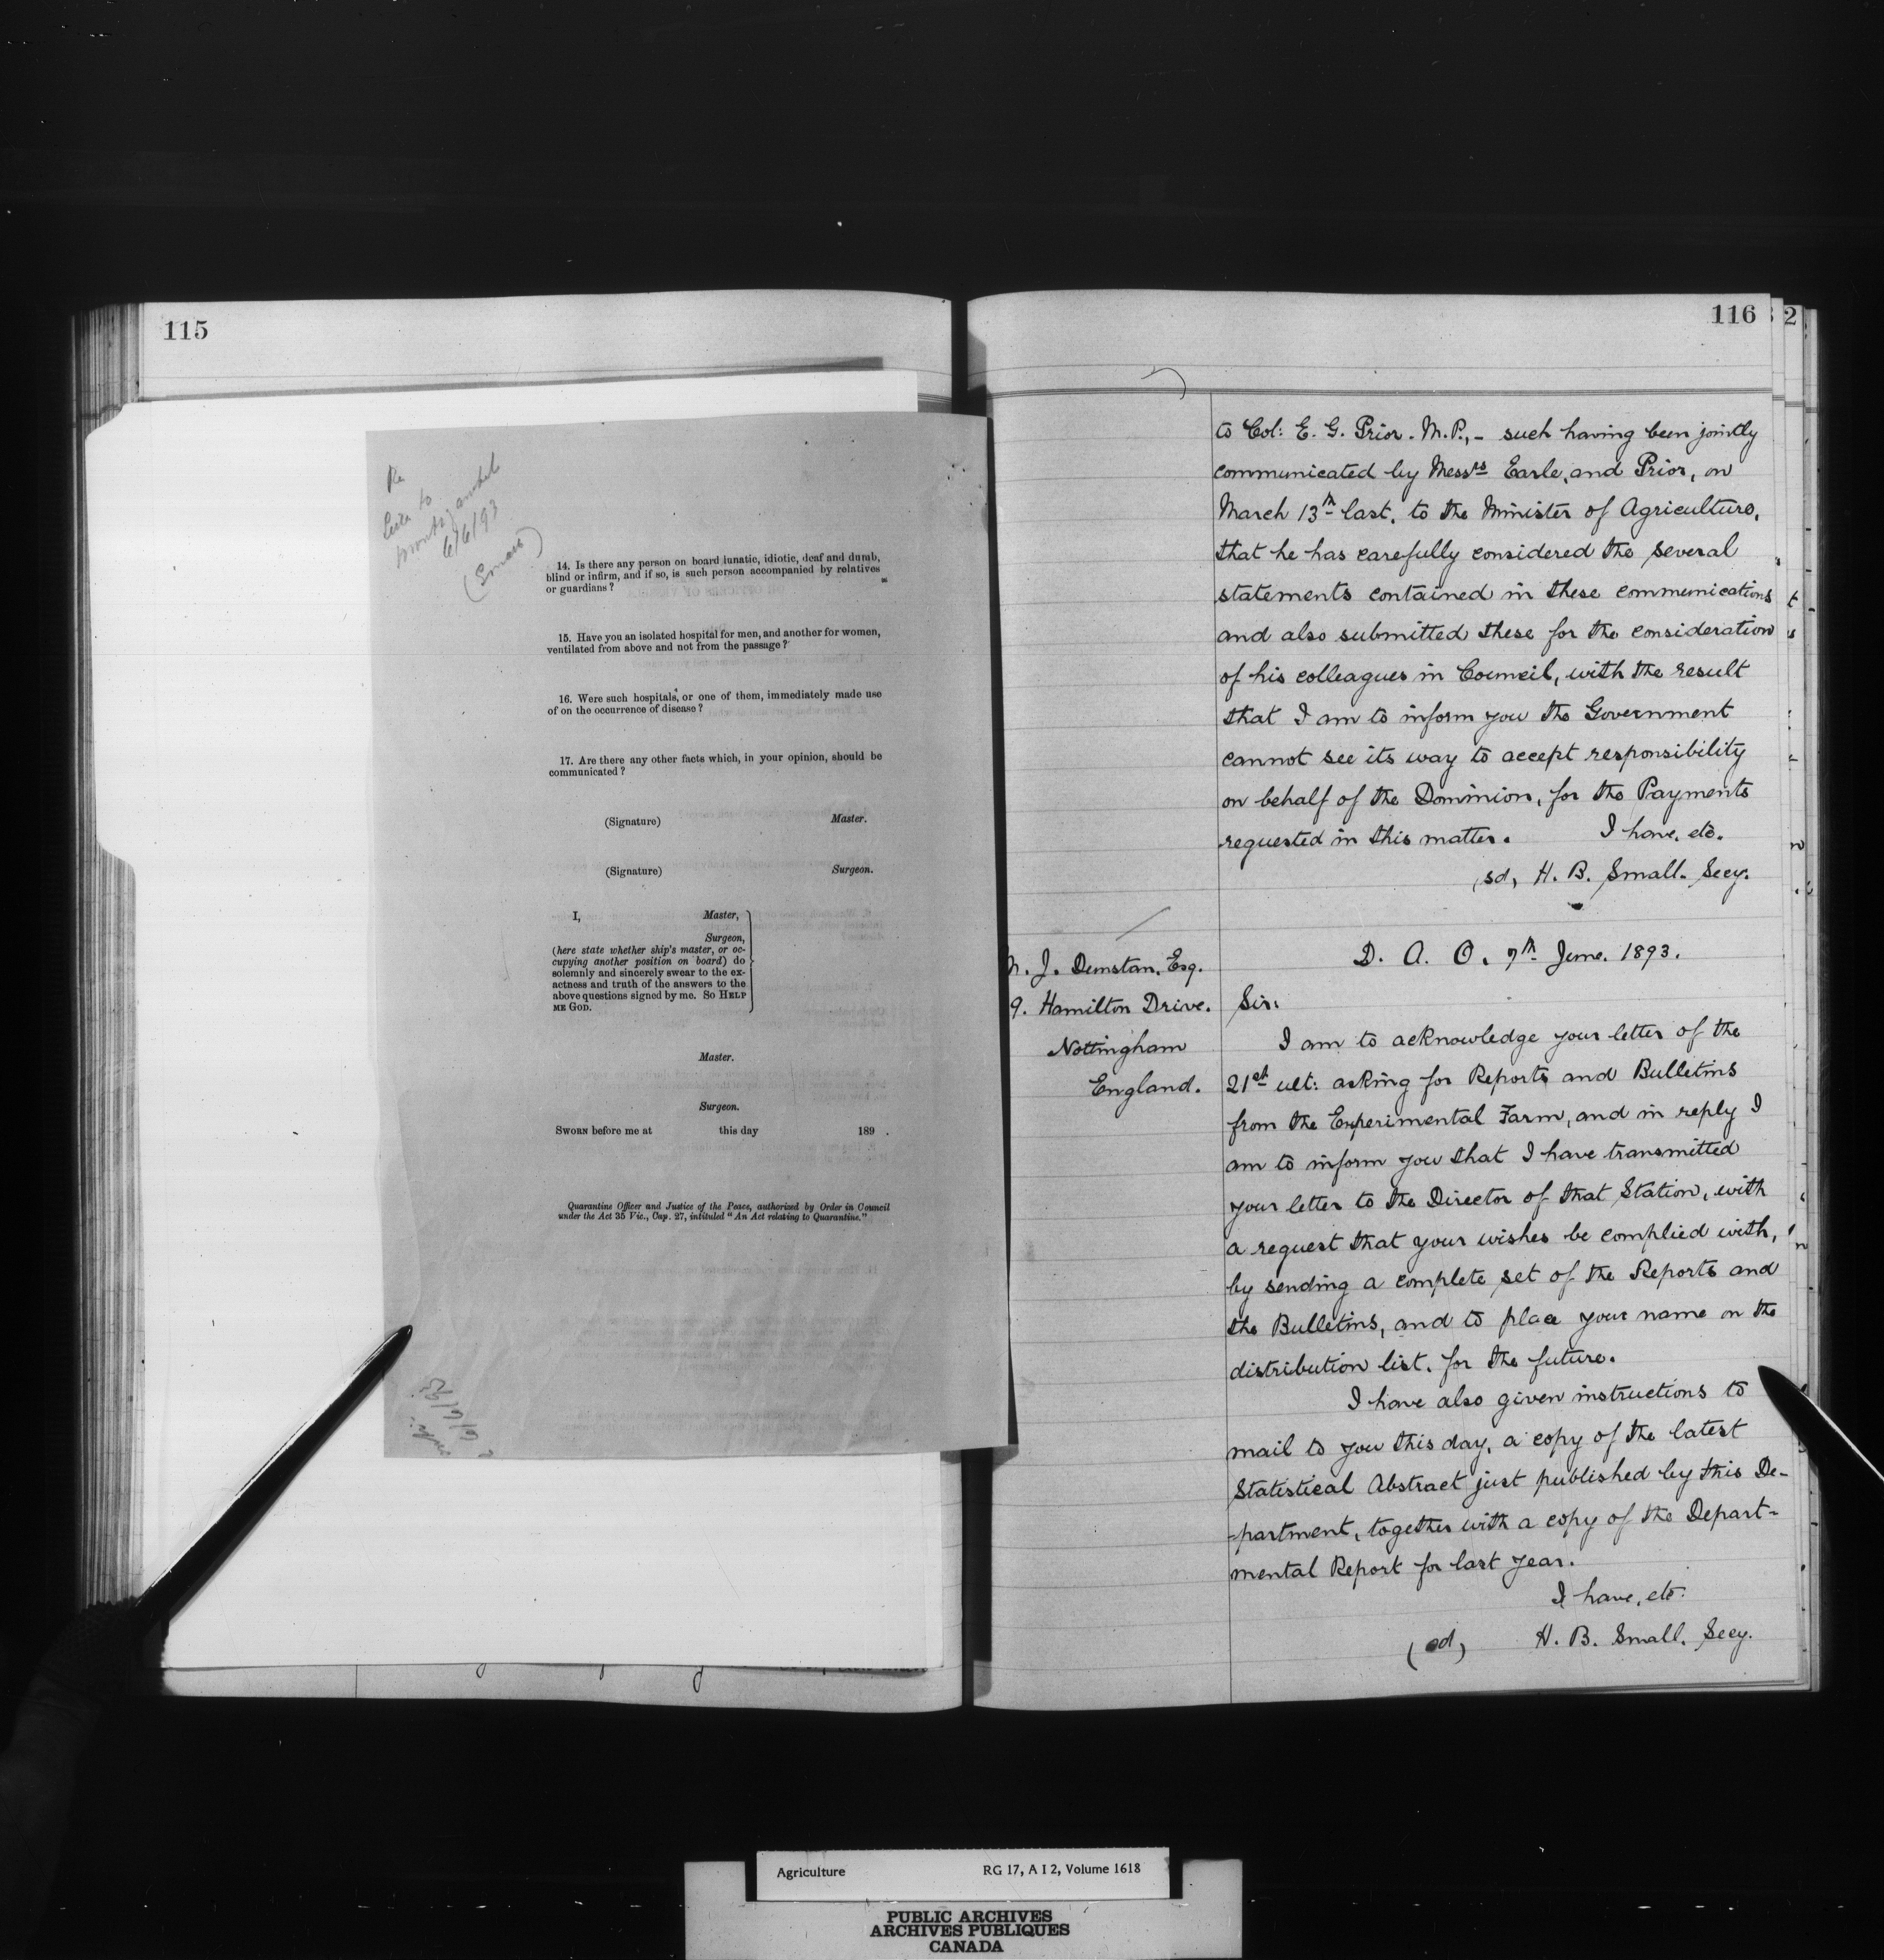 115
Re
6/6/93
14. Is there any person on board lunatic, idiotic, deaf and dumb,
blind or infirm, and if so, is such person accompanied by relatives
or guardians?
15. Have you an isolated hospital for men, and another for women,
ventilated from above and not from the passage?
16. Were such hospitals, or one of them, immediately made use
of on the occurrence of disease?
17. Are there any other facts which, in your opinion, should be
communicated?
(Signature) Master.
(Signature) Surgeon.
I, Master,
Surgeon,
(here state whether ship's master, or oc-
cupying another position on board) do
solemnly and sincerely swear to the ex-
actness and truth of the answers to the
above questions signed by me. So HELP
ME GOD.
Master.
Surgeon.
SWORN before me at this day 189 .
Quarantine Officer and Justice of the Peace, authorized by Order in Council
under the Act 35 Vic., Cap. 27, intituled "An Act relating to Quarantine."
116
2
to Col: E. G. Prior. M.P., - such having been jointly
communicated by Messrs Earle, and Prior, on
March 13th last, to the Minister of Agriculture,
that he has carefully considered the several
statements contained in these communications
and also submitted these for the consideration
of his colleagues in Council, with the result
that I am to inform you the Government
cannot see its way to accept responsibility
on behalf of the Dominion, for the Payments
requested in this matter. I have, etc.
(sd) H. B. Small. Secy.
D. A. O. 7th June. 1893.
J. Dunstan, Esq.
9. Hamilton Drive.
Nottingham
England.
Sir:
I am to acknowledge your letter of the
21st ult: asking for Reports and Bulletins
from the Experimental Farm, and in reply I
am to inform you that I have transmitted
your letter to the Director of that Station, with
a request that your wishes be complied with,
by sending a complete set of the Reports and
the Bulletins, and to place your name on the
distribution list, for the future.
I have also given instructions to
mail to you this day, a copy of the latest
Statistical Abstract just published by this De-
-partment, together with a copy of the Depart-
mental Report for last year.
I have, etc.
(sd) H. B. Small. Secy.
Agriculture RG 17, A I 2, Volume 1618
PUBLIC ARCHIVES
ARCHIVES PUBLIQUES
CANADA